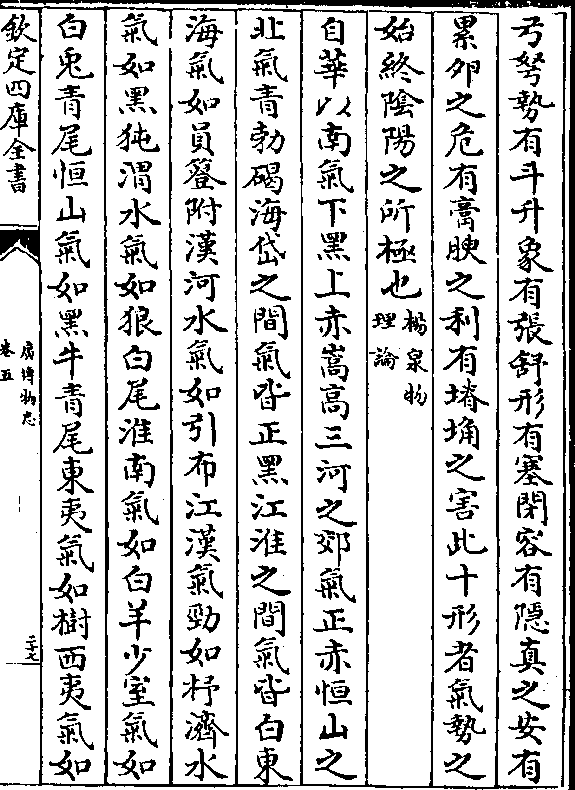 弓弩勢有斗升象有張舒形有塞閉容有隱真之安有
累卵之危有膏腴之利有塉埆之害此十形者氣勢之
始終陰陽之所極也楊泉物理論
自華以南氣下黑上赤嵩高三河之郊氣正赤恒山之
北氣青勃碣海岱之間氣皆正黑江淮之間氣皆白東
海氣如員簦附漢河水氣如引布江漢氣勁如杼濟水
氣如黑㹠渭水氣如狼白尾淮南氣如白羊少室氣如
白兎青尾恒山氣如黑牛青尾東夷氣如樹西夷氣如
欽定四庫全書
廣博物志
卷五
二十七